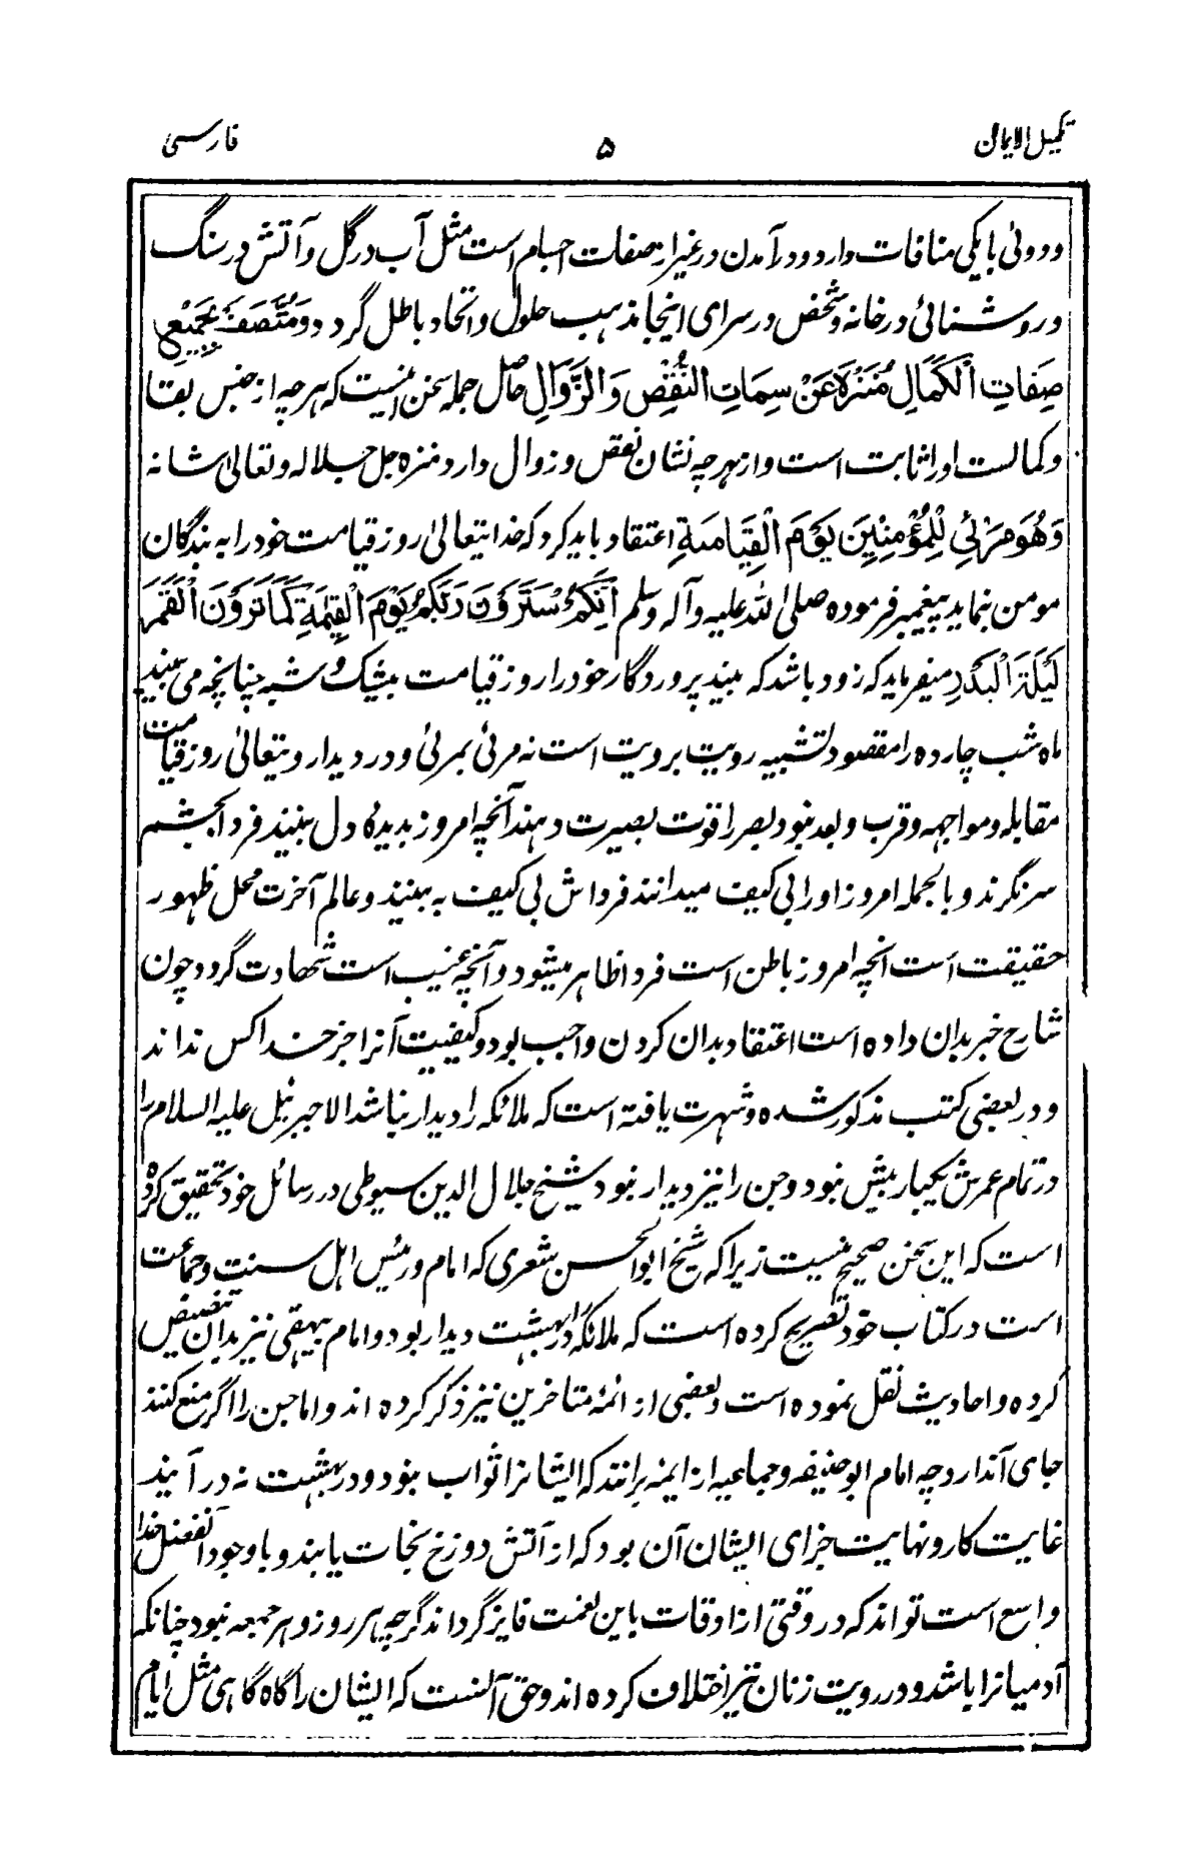 تکمیل الایمان ۵ فارسی
و دوئی با یکی منافات دارد و در آمدن در غیر از صفات اجسام است مثل آب در گل و آتش در سنگ
و روشنائی در خانه و شخص در سرای اینجا مذہب حلول و اتحاد باطل گردد وَمُتَّصَفٌ بِجَمِيعِ
صِفَاتِ الْكَمَالِ مُنَزَّهٌ عَنْ سِمَاتِ النَّقْصِ وَالزَّوَالِ حاصل جملہ سخن اینست کہ ہر چہ از جنس بقا
و کمالست او را ثابت است و از ہر چہ نشان نقص و زوال دارد منزہ جل جلالہ و تعالیٰ شانہ
وَهُوَ مَرْئِيٌّ لِلْمُؤْمِنِينَ يَوْمَ الْقِيَامَةِ اعتقاد باید کرد کہ خدایتعالیٰ روز قیامت خود را بہ بندگان
مومن بنماید پیغمبر فرمودہ صلی اللہ علیہ وآلہ وسلم اَنَّكُمْ سَتَرَوْنَ رَبَّكُمْ يَوْمَ الْقِيٰمَةِ كَمَا تَرَوْنَ الْقَمَرَ
لَيْلَةَ الْبَدْرِ میفرماید کہ زود باشد کہ ببیند پروردگار خود را روز قیامت بیشک و شبہ چنانچہ می بینید
ماہ شب چاردہ را مقصود تشبیہ رویت برویت است نہ مرئی بمرئی و در دیدار ویتعالیٰ روز قیامت
مقابلہ و مواجہہ و قرب و بعد نبود بصر را قوت بصیرت دہند آنچہ امروز بدیدۂ دل بینند فردا بچشم
سر نگرند و بالجملہ امروز او را بی کیف میدانند فردا ش بی کیف بہ بینند و عالم آخرت محل ظہور
حقیقت است انچہ امروز باطن است فردا ظاہر میشود و آنچہ غیب است شہادت گردد چون
شارح خبر بدان دادہ است اعتقاد بدان کردن واجب بود و کیفیت آنرا جز خدا کس نداند
و در بعضی کتب مذکور شدہ و شہرت یافتہ است کہ ملائکہ را دیدار نباشد الا جبرئیل علیہ السلام را
در تمام عمرش یکبار بیش نبود و جن را نیز دیدار نبود شیخ جلال الدین سیوطی در رسائل خود تحقیق کردہ
است کہ این سخن صحیح نیست زیرا کہ شیخ ابوالحسن شعری کہ امام و رئیس اہل سنت و جماعت
است در کتاب خود تصریح کردہ است کہ ملائکہ را در بہشت دیدار بود و امام بیہقی نیز بدان تنصیص
کردہ و احادیث نقل نمودہ است و بعضی از ائمۂ متاخرین نیز ذکر کردہ اند و اما جن را اگر منع کنند
جای آن دارد چہ امام ابو حنیفہ و جماعہ از ایمہ برانند کہ ایشانرا ثواب نبود و در بہشت نہ در آیند
غایت کار و نہایت جزای ایشان آن بود کہ از آتش دوزخ نجات یابند و با وجود آن فضل خدا
واسع است تواند کہ در وقتی از اوقات باین نعمت فایز گرداند گرچہ ہر روز و ہر جمعہ نبود چنانکہ
آدمیانرا باشد و در رویت زنان نیز اختلاف کردہ اند و حق آنست کہ ایشان را گاہ گاہی مثل ایام